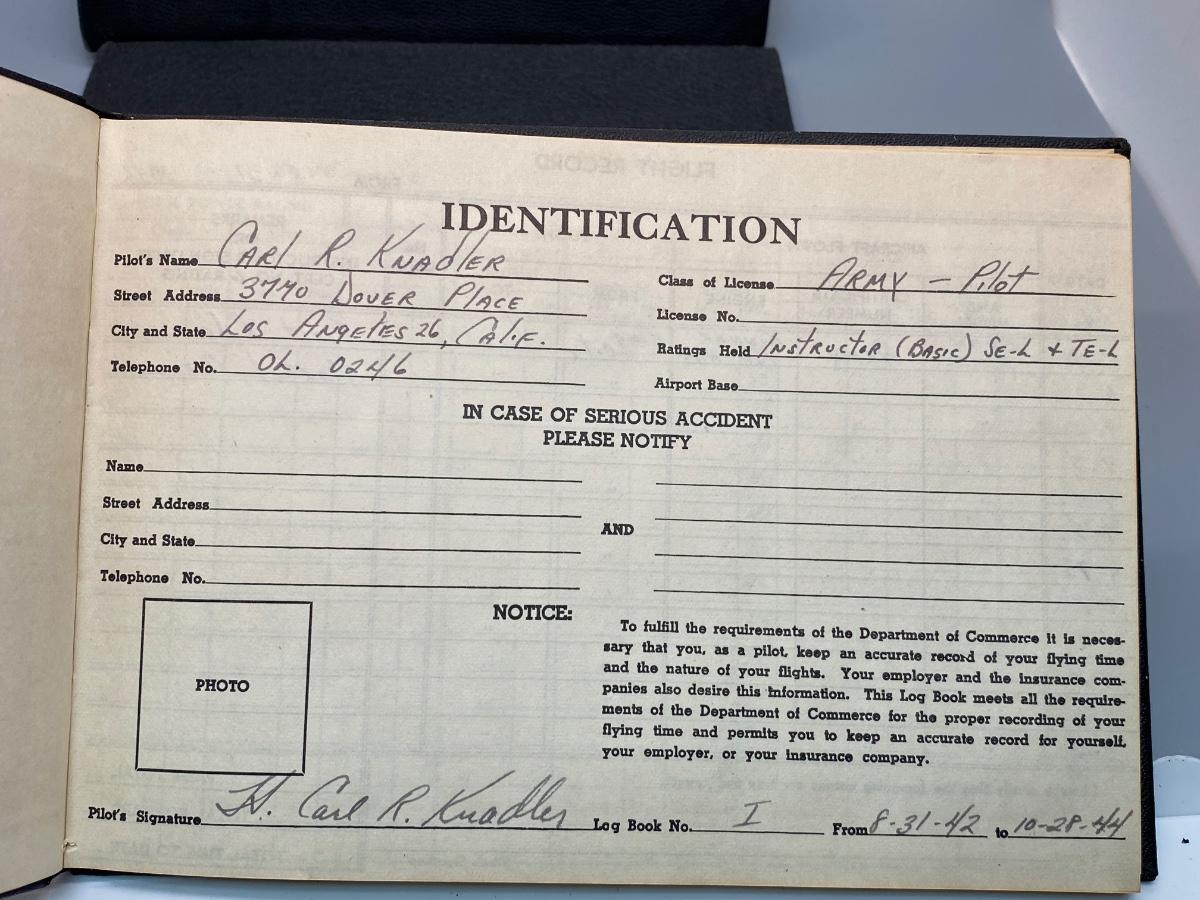 IDENTIFICATION
Pilot's Name CARl R. KNADlER
Street Address 3770 DOVER PlACE
City and State Los ANgElES 26, CAliF.
Telephone No. OL. 0246
Class of License ARMY – Pilot
License No.
Ratings Held INSTRUCTOR (BASIC) SE-L + TE-L
Airport Base
IN CASE OF SERIOUS ACCIDENT
PLEASE NOTIFY
Name
Street Address
AND
City and State
Telephone No.
PHOTO
NOTICE:
To fulfill the requirements of the Department of Commerce it is neces-
sary that you, as a pilot, keep an accurate record of your flying time
and the nature of your flights. Your employer and the insurance com-
panies also desire this information. This Log Book meets all the require-
ments of the Department of Commerce for the proper recording of your
flying time and permits you to keep an accurate record for yourself,
your employer, or your insurance company.
Pilot's Signature Lt. Carl R. Knadler Log Book No. I From 8-31-42 to 10-28-44